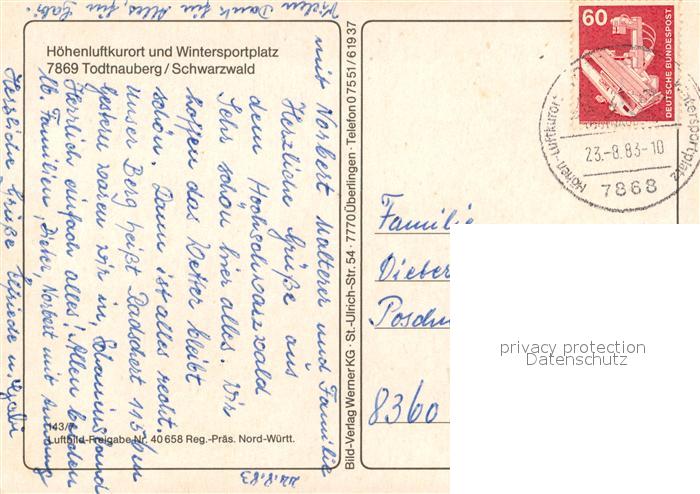 Vielen Dank für Alles, für Gabi.
Höhenluftkurort und Wintersportplatz
7869 Todtnauberg/Schwarzwald
Herzliche Grüße aus
dem Hochschwarzwald
Sehr schön hier alles. Wir
hoffen das Wetter bleibt
schön. Dann ist alles recht.
unser Berg heißt Radschert
gestern waren wir in
Herrlich einfach alles! Allen beiden
lb. Familien, Dieter, Norbert mit
Herzliche Grüße Elfriede u. Gabi
mit Norbert Malterer und Familie
22.8.83
143/
Luftbild-Freigabe Nr. 40658 Reg.-Präs. Nord-Württ.
Bild-Verlag Werner KG · St.-Ulrich-Str. 54 · 7770 Überlingen · Telefon 07551/61937
60
DEUTSCHE BUNDESPOST
Höhen-Luftkurort
23.-8.83-10
7868
Familie
Dieter
8360
privacy protection
Datenschutz